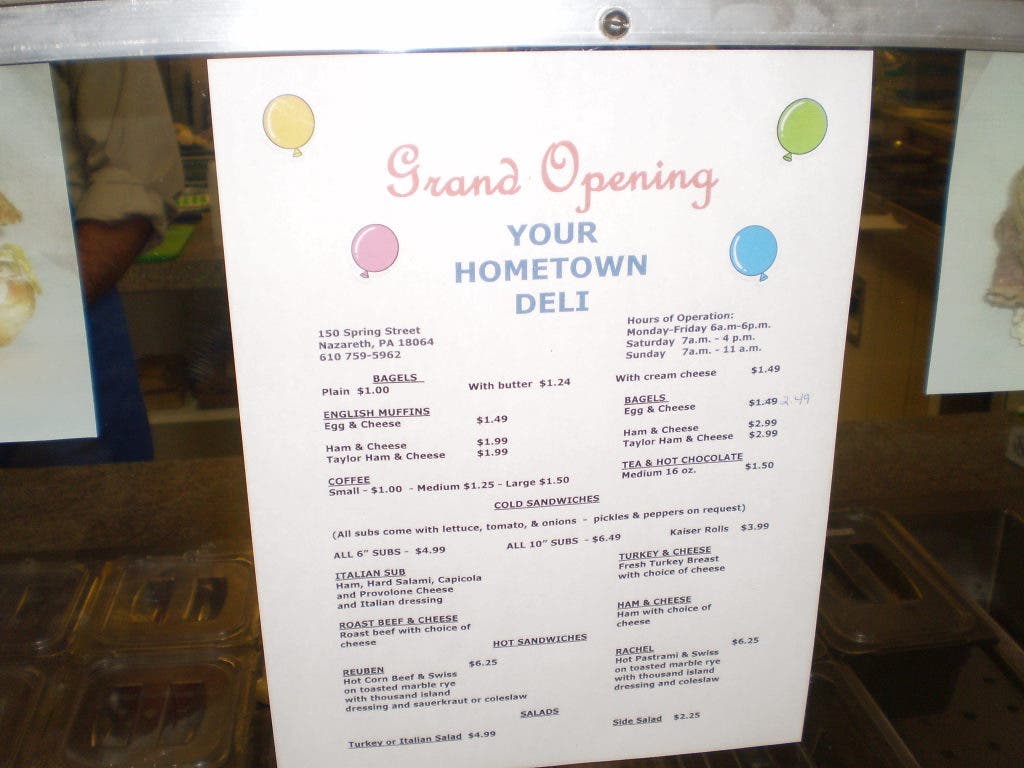 Grand Opening
YOUR
HOMETOWN
DELI
150 Spring Street
Nazareth, PA 18064
610 759-5962
Hours of Operation:
Monday-Friday 6a.m-6p.m.
Saturday 7a.m. - 4 p.m.
Sunday 7a.m. - 11 a.m.
BAGELS
Plain $1.00 With butter $1.24 With cream cheese $1.49
ENGLISH MUFFINS
Egg & Cheese $1.49
Ham & Cheese $1.99
Taylor Ham & Cheese $1.99
BAGELS
Egg & Cheese $1.49 2.49
Ham & Cheese $2.99
Taylor Ham & Cheese $2.99
COFFEE
Small - $1.00 - Medium $1.25 - Large $1.50
TEA & HOT CHOCOLATE
Medium 16 oz. $1.50
COLD SANDWICHES
(All subs come with lettuce, tomato, & onions - pickles & peppers on request)
ALL 6" SUBS - $4.99 ALL 10" SUBS - $6.49 Kaiser Rolls $3.99
ITALIAN SUB
Ham, Hard Salami, Capicola
and Provolone Cheese
and Italian dressing
TURKEY & CHEESE
Fresh Turkey Breast
with choice of cheese
ROAST BEEF & CHEESE
Roast beef with choice of
cheese
HAM & CHEESE
Ham with choice of
cheese
HOT SANDWICHES
REUBEN $6.25
Hot Corn Beef & Swiss
on toasted marble rye
with thousand island
dressing and sauerkraut or coleslaw
RACHEL $6.25
Hot Pastrami & Swiss
on toasted marble rye
with thousand island
dressing and coleslaw
SALADS
Turkey or Italian Salad $4.99 Side Salad $2.25